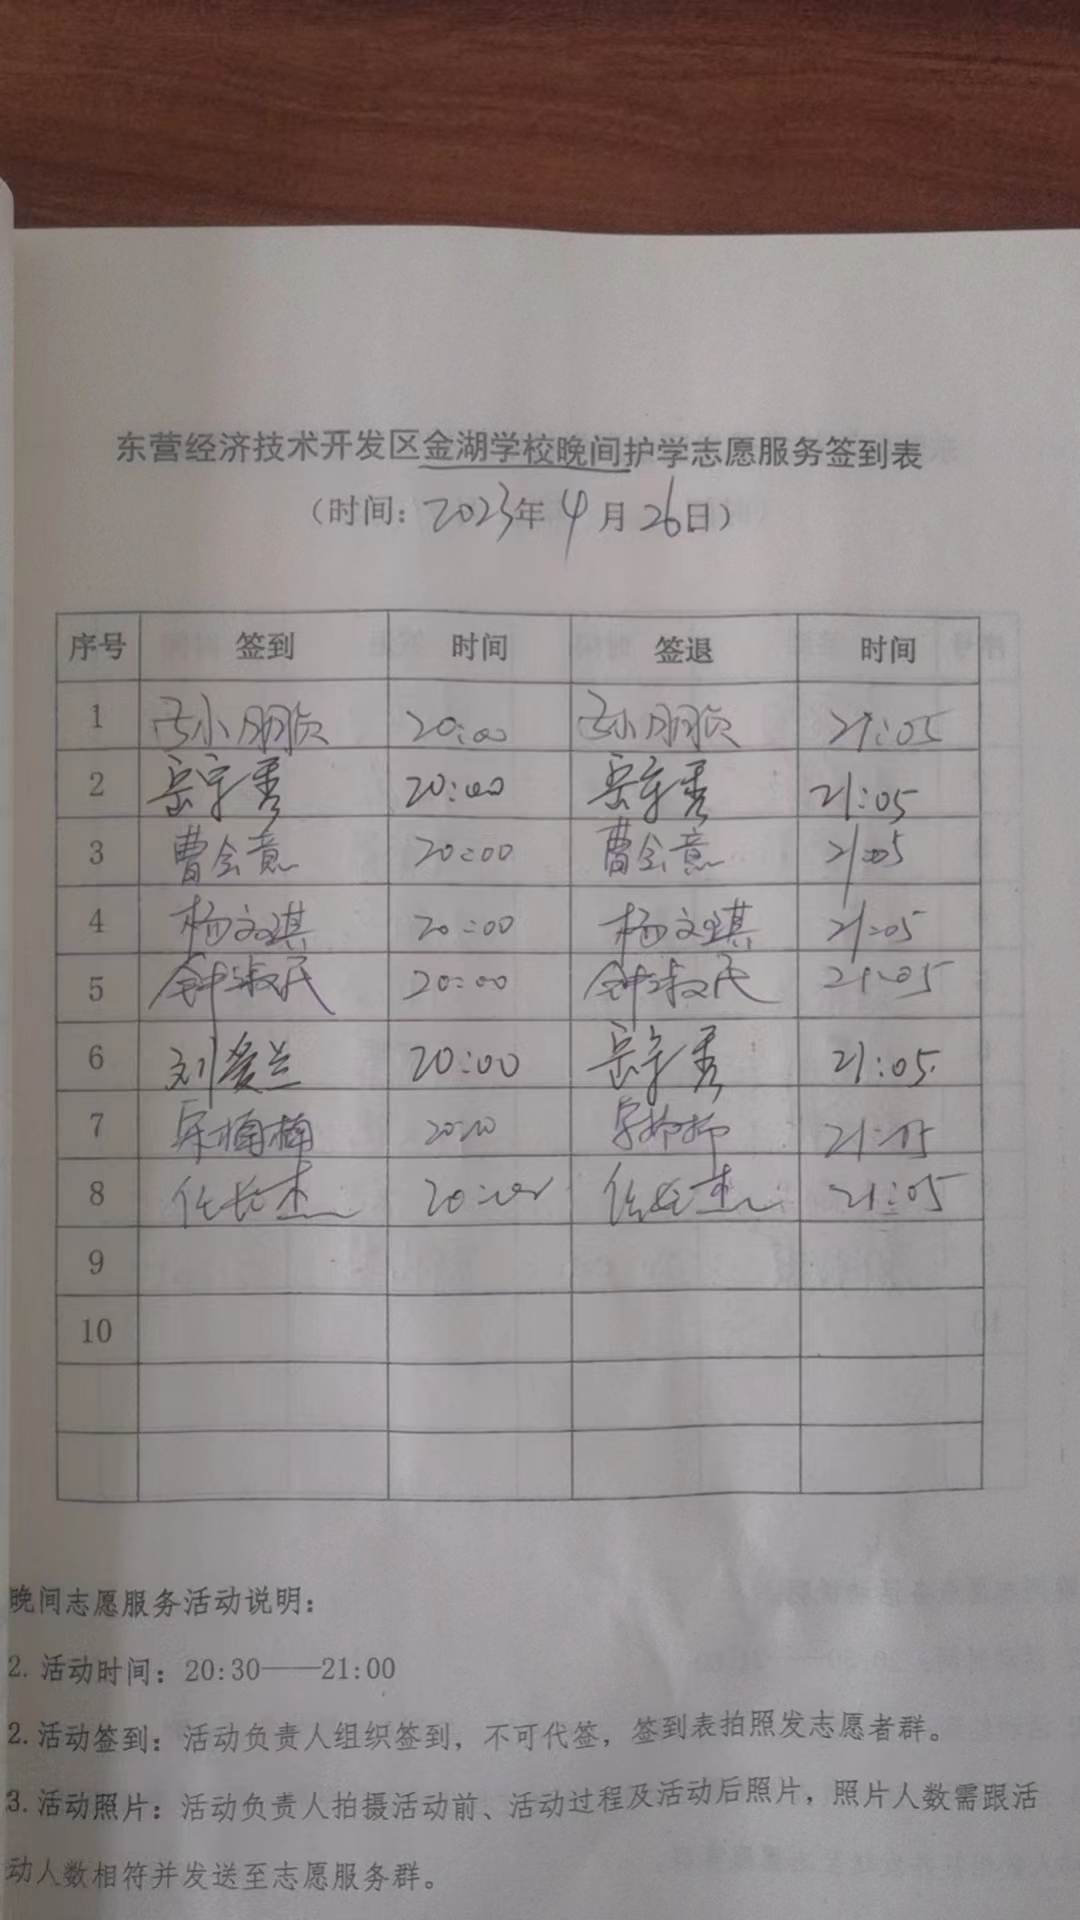 东营经济技术开发区金湖学校晚间护学志愿服务签到表
（时间：2023年4月26日）
序号 签到 时间 签退 时间
1 20:00 21:05
2 岳宇秀 20:00 岳宇秀 21:05
3 曹会意 20:00 曹会意 21:05
4 杨文琪 20:00 杨文琪 21:05
5 钟淑民 20:00 钟淑民 21:05
6 刘爱兰 20:00 岳宇秀 21:05
7 楠楠
8 任长杰 20:00 任长杰 21:05
9
10
晚间志愿服务活动说明：
2.活动时间：20:30——21:00
2.活动签到：活动负责人组织签到，不可代签，签到表拍照发志愿者群。
3.活动照片：活动负责人拍摄活动前、活动过程及活动后照片，照片人数需跟活
动人数相符并发送至志愿服务群。